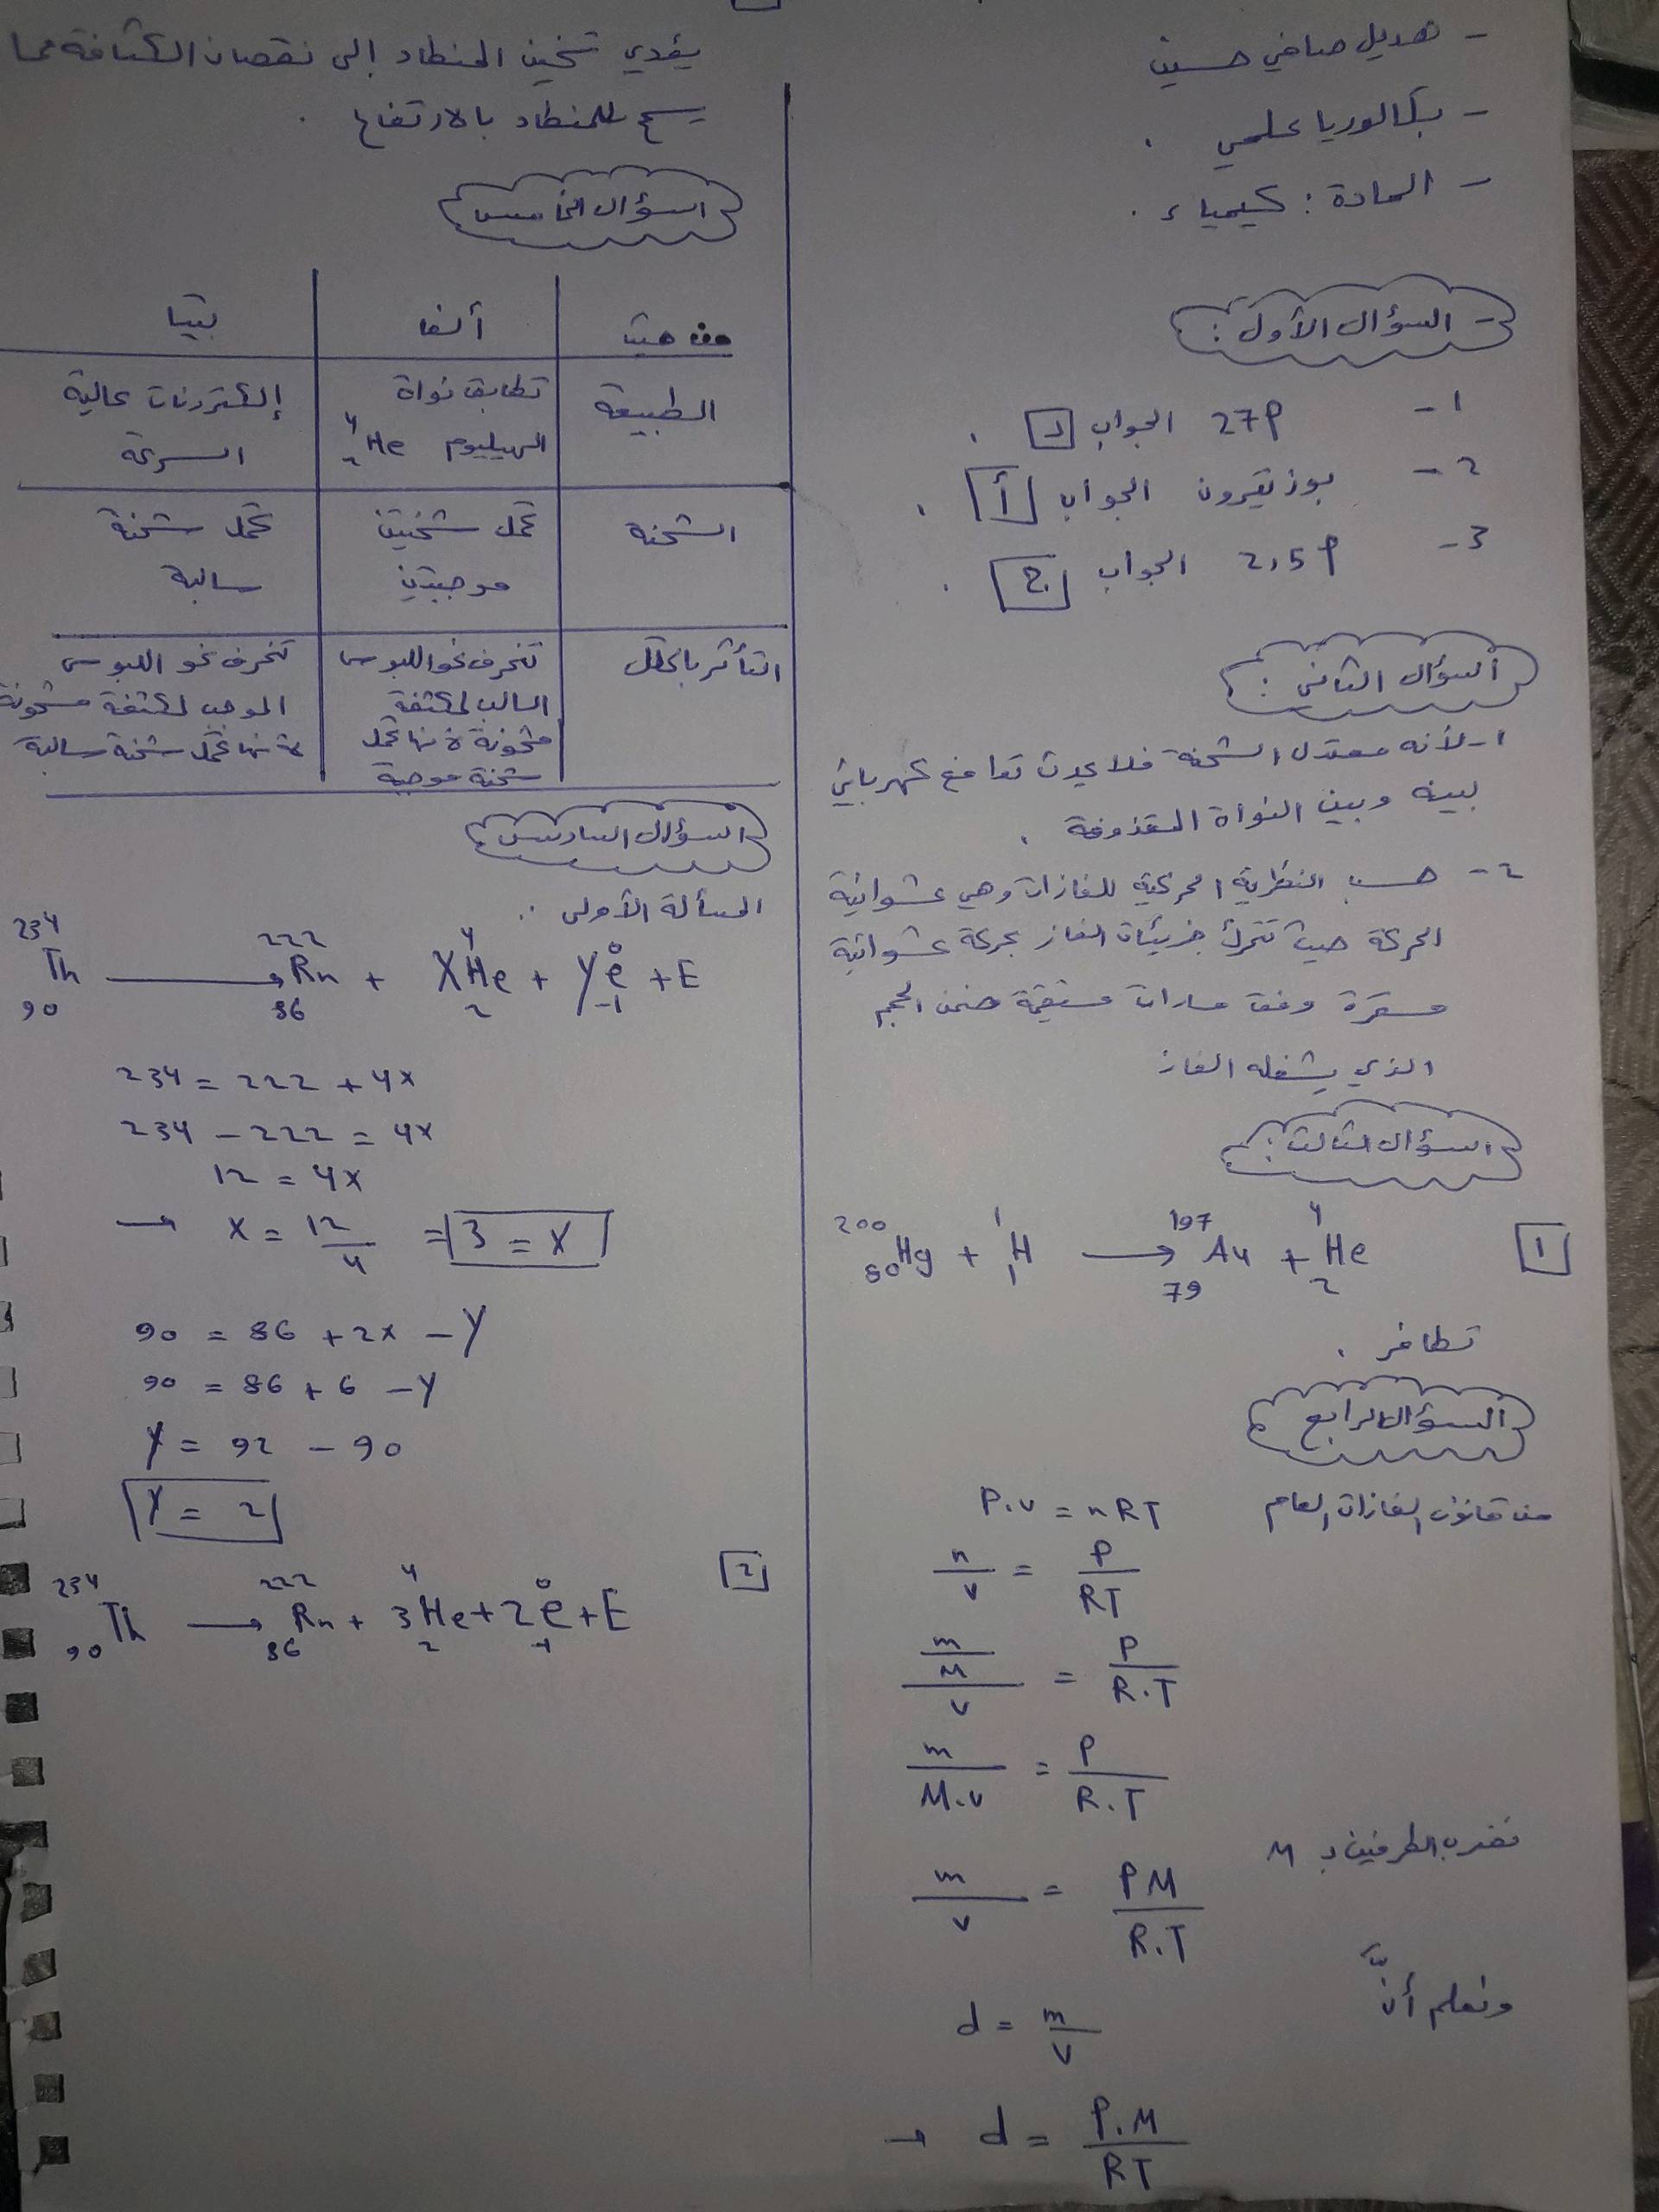 - هديل صافي حسين
- بكالوريا علمي .
- المادة : كيمياء .
- السؤال الأول :
1- 27P الجواب د .
2- بوزيترون الجواب أ .
3- 2,5P الجواب ج .
السؤال الثاني :
1- لأنه معتدل الشحنة فلا يحدث تدافع كهربائي
بينه وبين النواة المقذوفة .
2- حسب النظرية الحركية للغازات وهي عشوائية
الحركة حيث تتحرك جزيئات الغاز بحركة عشوائية
مستمرة وفق مسارات مستقيمة ضمن الحجم
الذي يشغله الغاز
السؤال الثالث :
1 ²⁰⁰₈₀Hg + ¹₁H → ¹⁹⁷₇₉Au + ⁴₂He
تطافر .
السؤال الرابع
من قانون الغازات العام P.v = nRT
n/v = P/RT
(m/M)/v = P/R.T
m/M.v = P/R.T
نضرب الطرفين بـ M
m/v = PM/R.T
ونعلم أنَّ
d = m/v
→ d = P.M/RT
يؤدي تسخين المنطاد إلى نقصان الكثافة مما
يسمح للمنطاد بالارتفاع .
السؤال الخامس
من حيث ألفا بيتا
الطبيعة تطابق نواة الهيليوم ⁴₂He إلكترونات عالية السرعة
الشحنة تحمل شحنتين موجبتين تحمل شحنة سالبة
التأثر بالحقل تنحرف نحو اللبوس السالب لمكثفة مشحونة لأنها تحمل شحنة موجبة تنحرف نحو اللبوس الموجب لمكثفة مشحونة لأنها تحمل شحنة سالبة
السؤال السادس
المسألة الأولى :
²³⁴₉₀Th → ²²²₈₆Rn + X⁴₂He + Y⁰₋₁e + E
234 = 222 + 4x
234 - 222 = 4x
12 = 4x
→ x = 12/4 = 3 = x
90 = 86 + 2x - Y
90 = 86 + 6 - Y
Y = 92 - 90
Y = 2
2
²³⁴₉₀Th → ²²²₈₆Rn + 3⁴₂He + 2⁰₋₁e + E